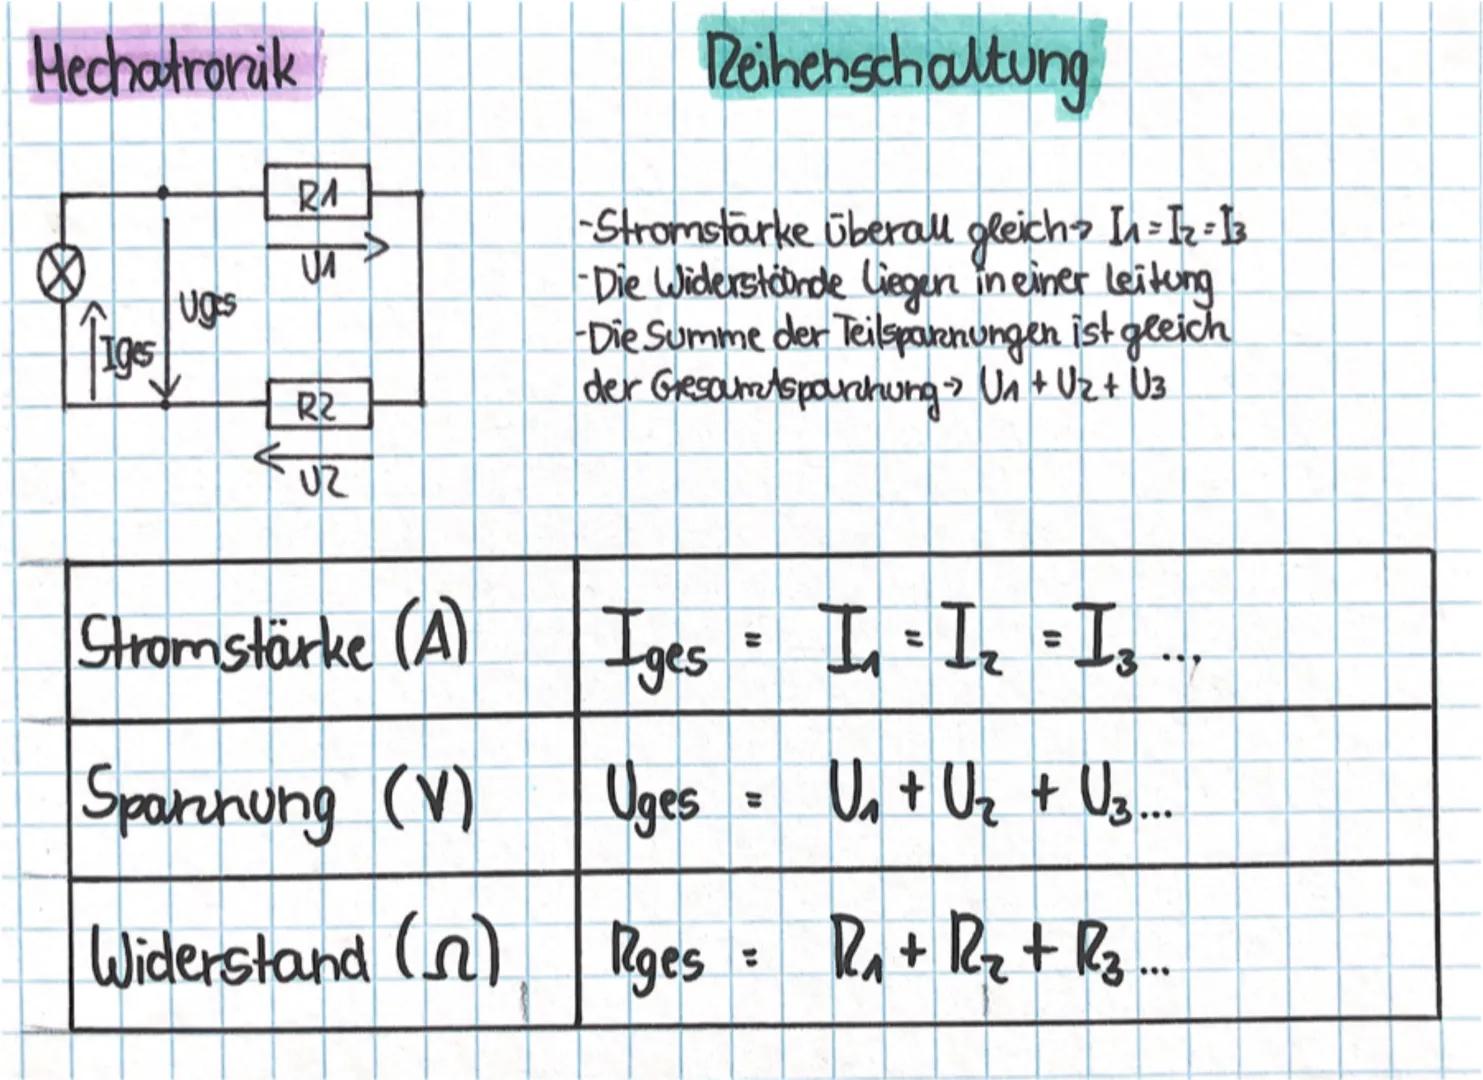 Mechatronik
Reihenschaltung
R1
U1
Uges
Iges
R2
U2
-Stromstärke überall gleich→ I1=I2=I3
-Die Widerstände liegen in einer Leitung
-Die Summe der Teilspannungen ist gleich
der Gesamtspannung→ U1 + U2 + U3
Stromstärke (A) Iges = I1 = I2 = I3 ...
Spannung (V) Uges = U1 + U2 + U3...
Widerstand (Ω) Rges = R1 + R2 + R3...